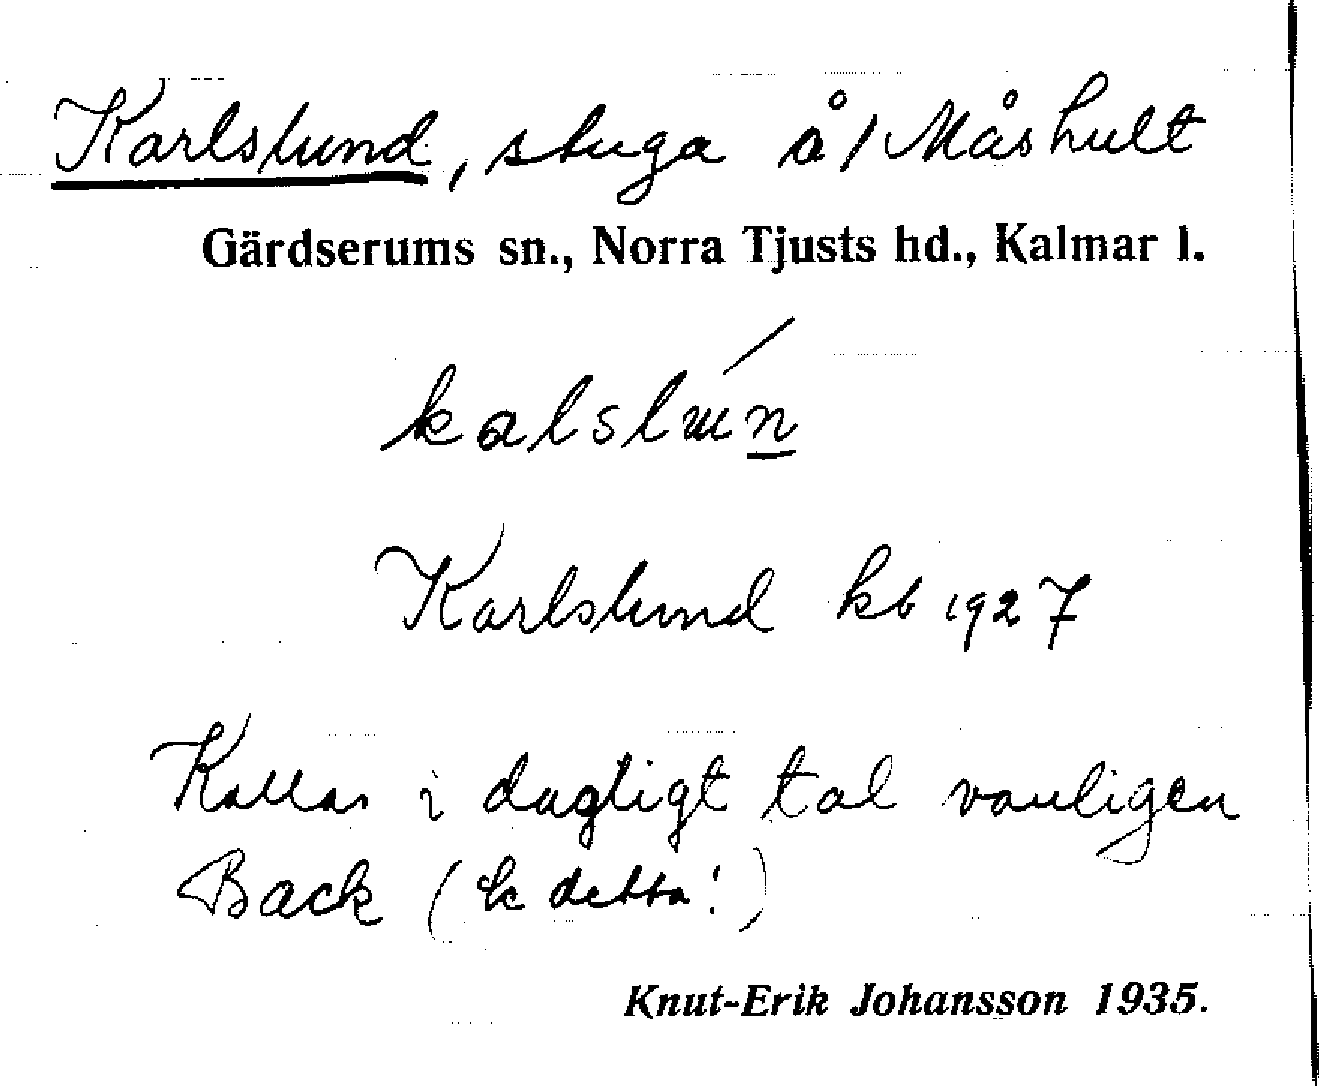 Karlslund, stuga å/Måshult
Gärdserums sn., Norra Tjusts hd., Kalmar l.
kalslun
Karlslund kb 1927
Kallas i dagligt tal vanligen
Back (se detta!)
Knut-Erik Johansson 1935.